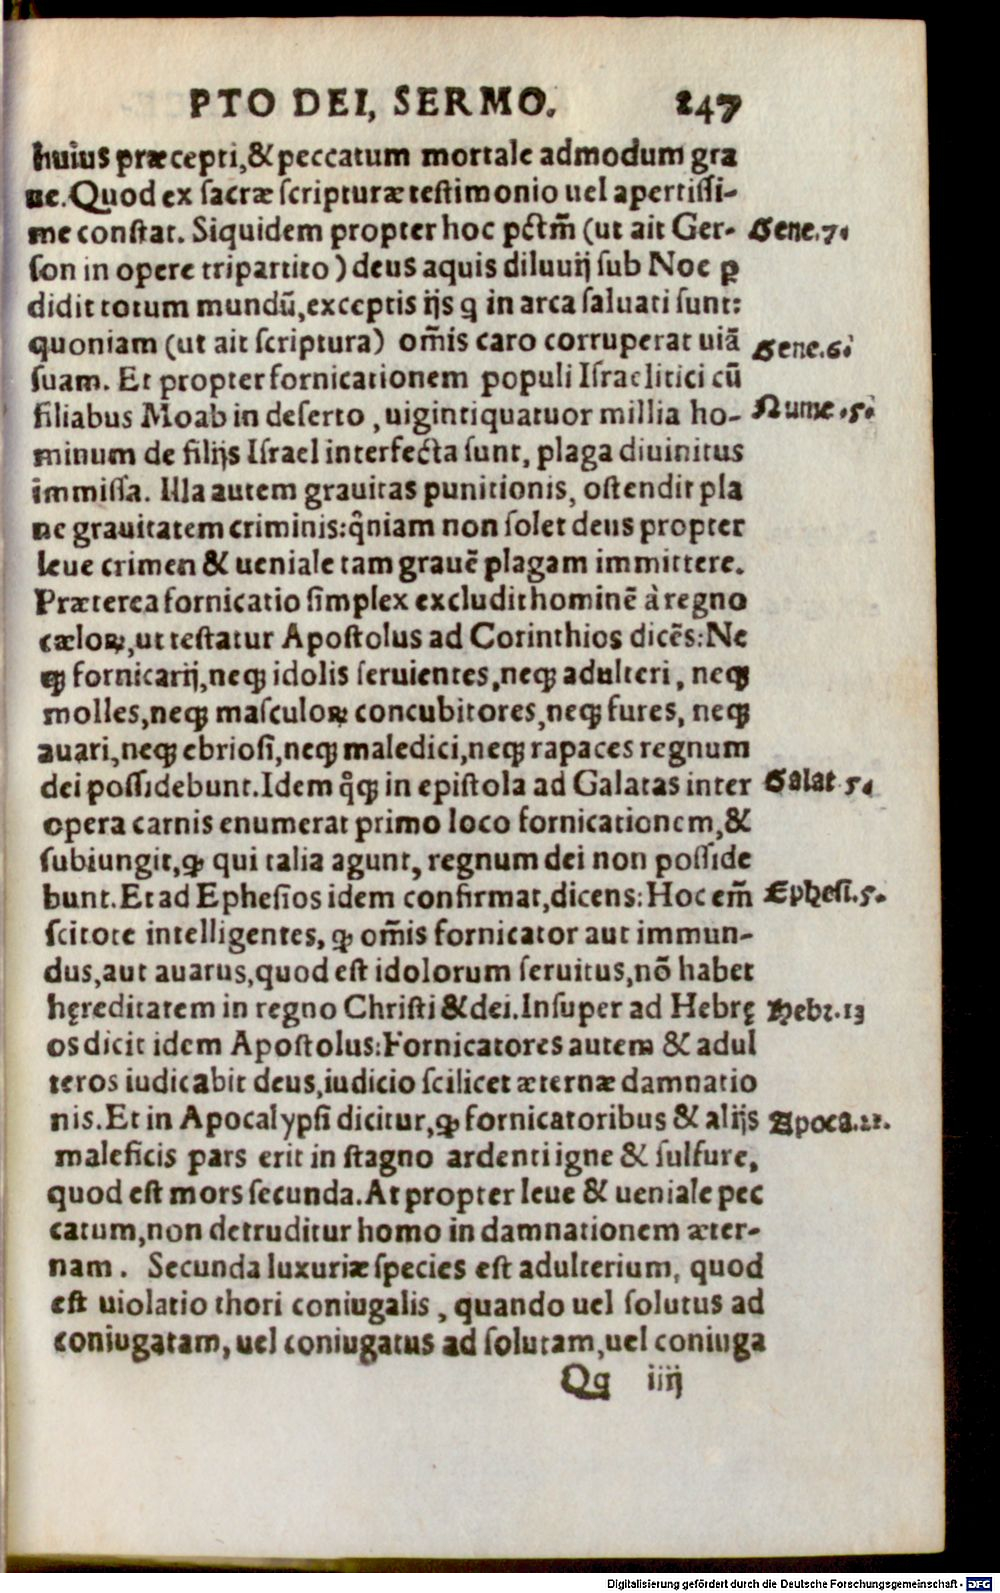 PTO DEI, SERMO. 247
huius præcepti,& peccatum mortale admodum gra
ue. Quod ex sacræ scripturæ testimonio uel apertissi-
me constat. Siquidem propter hoc pctm̃ (ut ait Ger- Gene.7.
son in opere tripartito) deus aquis diluuij sub Noe ꝑ
didit totum mundũ, exceptis ijs q in arca saluati sunt:
quoniam (ut ait scriptura) om̃is caro corruperat uiã Gene.6.
suam. Et propter fornicationem populi Israelitici cũ
filiabus Moab in deserto, uigintiquatuor millia ho- Nume.5.
minum de filijs Israel interfecta sunt, plaga diuinitus
immissa. Illa autem grauitas punitionis, ostendit pla
ne grauitatem criminis: q̃niam non solet deus propter
leue crimen & ueniale tam grauẽ plagam immittere.
Præterea fornicatio simplex excludit hominẽ à regno
cæloꝝ, ut testatur Apostolus ad Corinthios dicẽs: Ne
qꝫ fornicarij, neqꝫ idolis seruientes, neqꝫ adulteri, neqꝫ
molles, neqꝫ masculoꝝ concubitores, neqꝫ fures, neqꝫ
auari, neqꝫ ebriosi, neqꝫ maledici, neqꝫ rapaces regnum
dei possidebunt. Idem q̊qꝫ in epistola ad Galatas inter Galat 5.
opera carnis enumerat primo loco fornicationem, &
subiungit, ꝙ qui talia agunt, regnum dei non posside
bunt. Et ad Ephesios idem confirmat, dicens: Hoc em̃ Ephesi.5.
scitote intelligentes, ꝙ om̃is fornicator aut immun-
dus, aut auarus, quod est idolorum seruitus, nõ habet
hęreditatem in regno Christi & dei. Insuper ad Hebrę Hebr.13
os dicit idem Apostolus: Fornicatores autem & adul
teros iudicabit deus, iudicio scilicet æternæ damnatio
nis. Et in Apocalypsi dicitur, ꝙ fornicatoribus & alijs Apoca.21.
maleficis pars erit in stagno ardenti igne & sulfure,
quod est mors secunda. At propter leue & ueniale pec
catum, non detruditur homo in damnationem æter-
nam. Secunda luxuriæ species est adulterium, quod
est uiolatio thori coniugalis, quando uel solutus ad
coniugatam, uel coniugatus ad solutam, uel coniuga
Qq iiij
Digitalisierung gefördert durch die Deutsche Forschungsgemeinschaft - DFG